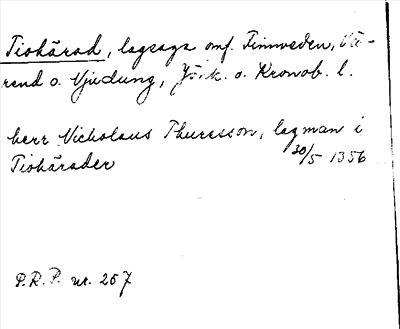 Tiohärad, lagsaga omf. Finnveden, Vä-
rend o. Njudung, Jönk. o. Kronob. l.
herr Nicholaus Thuresson, lagman i
Tiohärader 30/5 1356
P.R.P. nr. 267